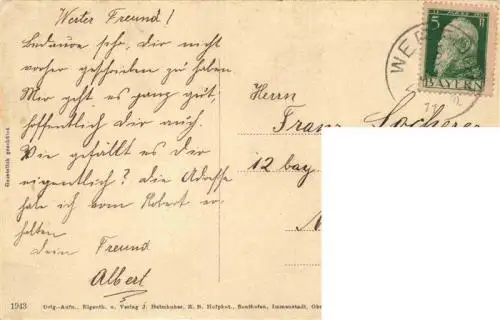 Werter Freund!
Bedaure sehr, dir nicht
vorher geschrieben zu haben
Mir geht es ganz gut,
hoffentlich dir auch.
Wie gefällt es dir
eigentlich? die Adresse
habe ich vom Robert er-
halten
dein Freund
Albert
5
BAYERN
WE
11
Herrn
Franz Locherer
12 bay
Gesetzlich geschützt
1943 Orig.-Aufn., Eigenth. u. Verlag J. Heimhuber, K. B. Hofphot., Sonthofen, Immenstadt, Obe